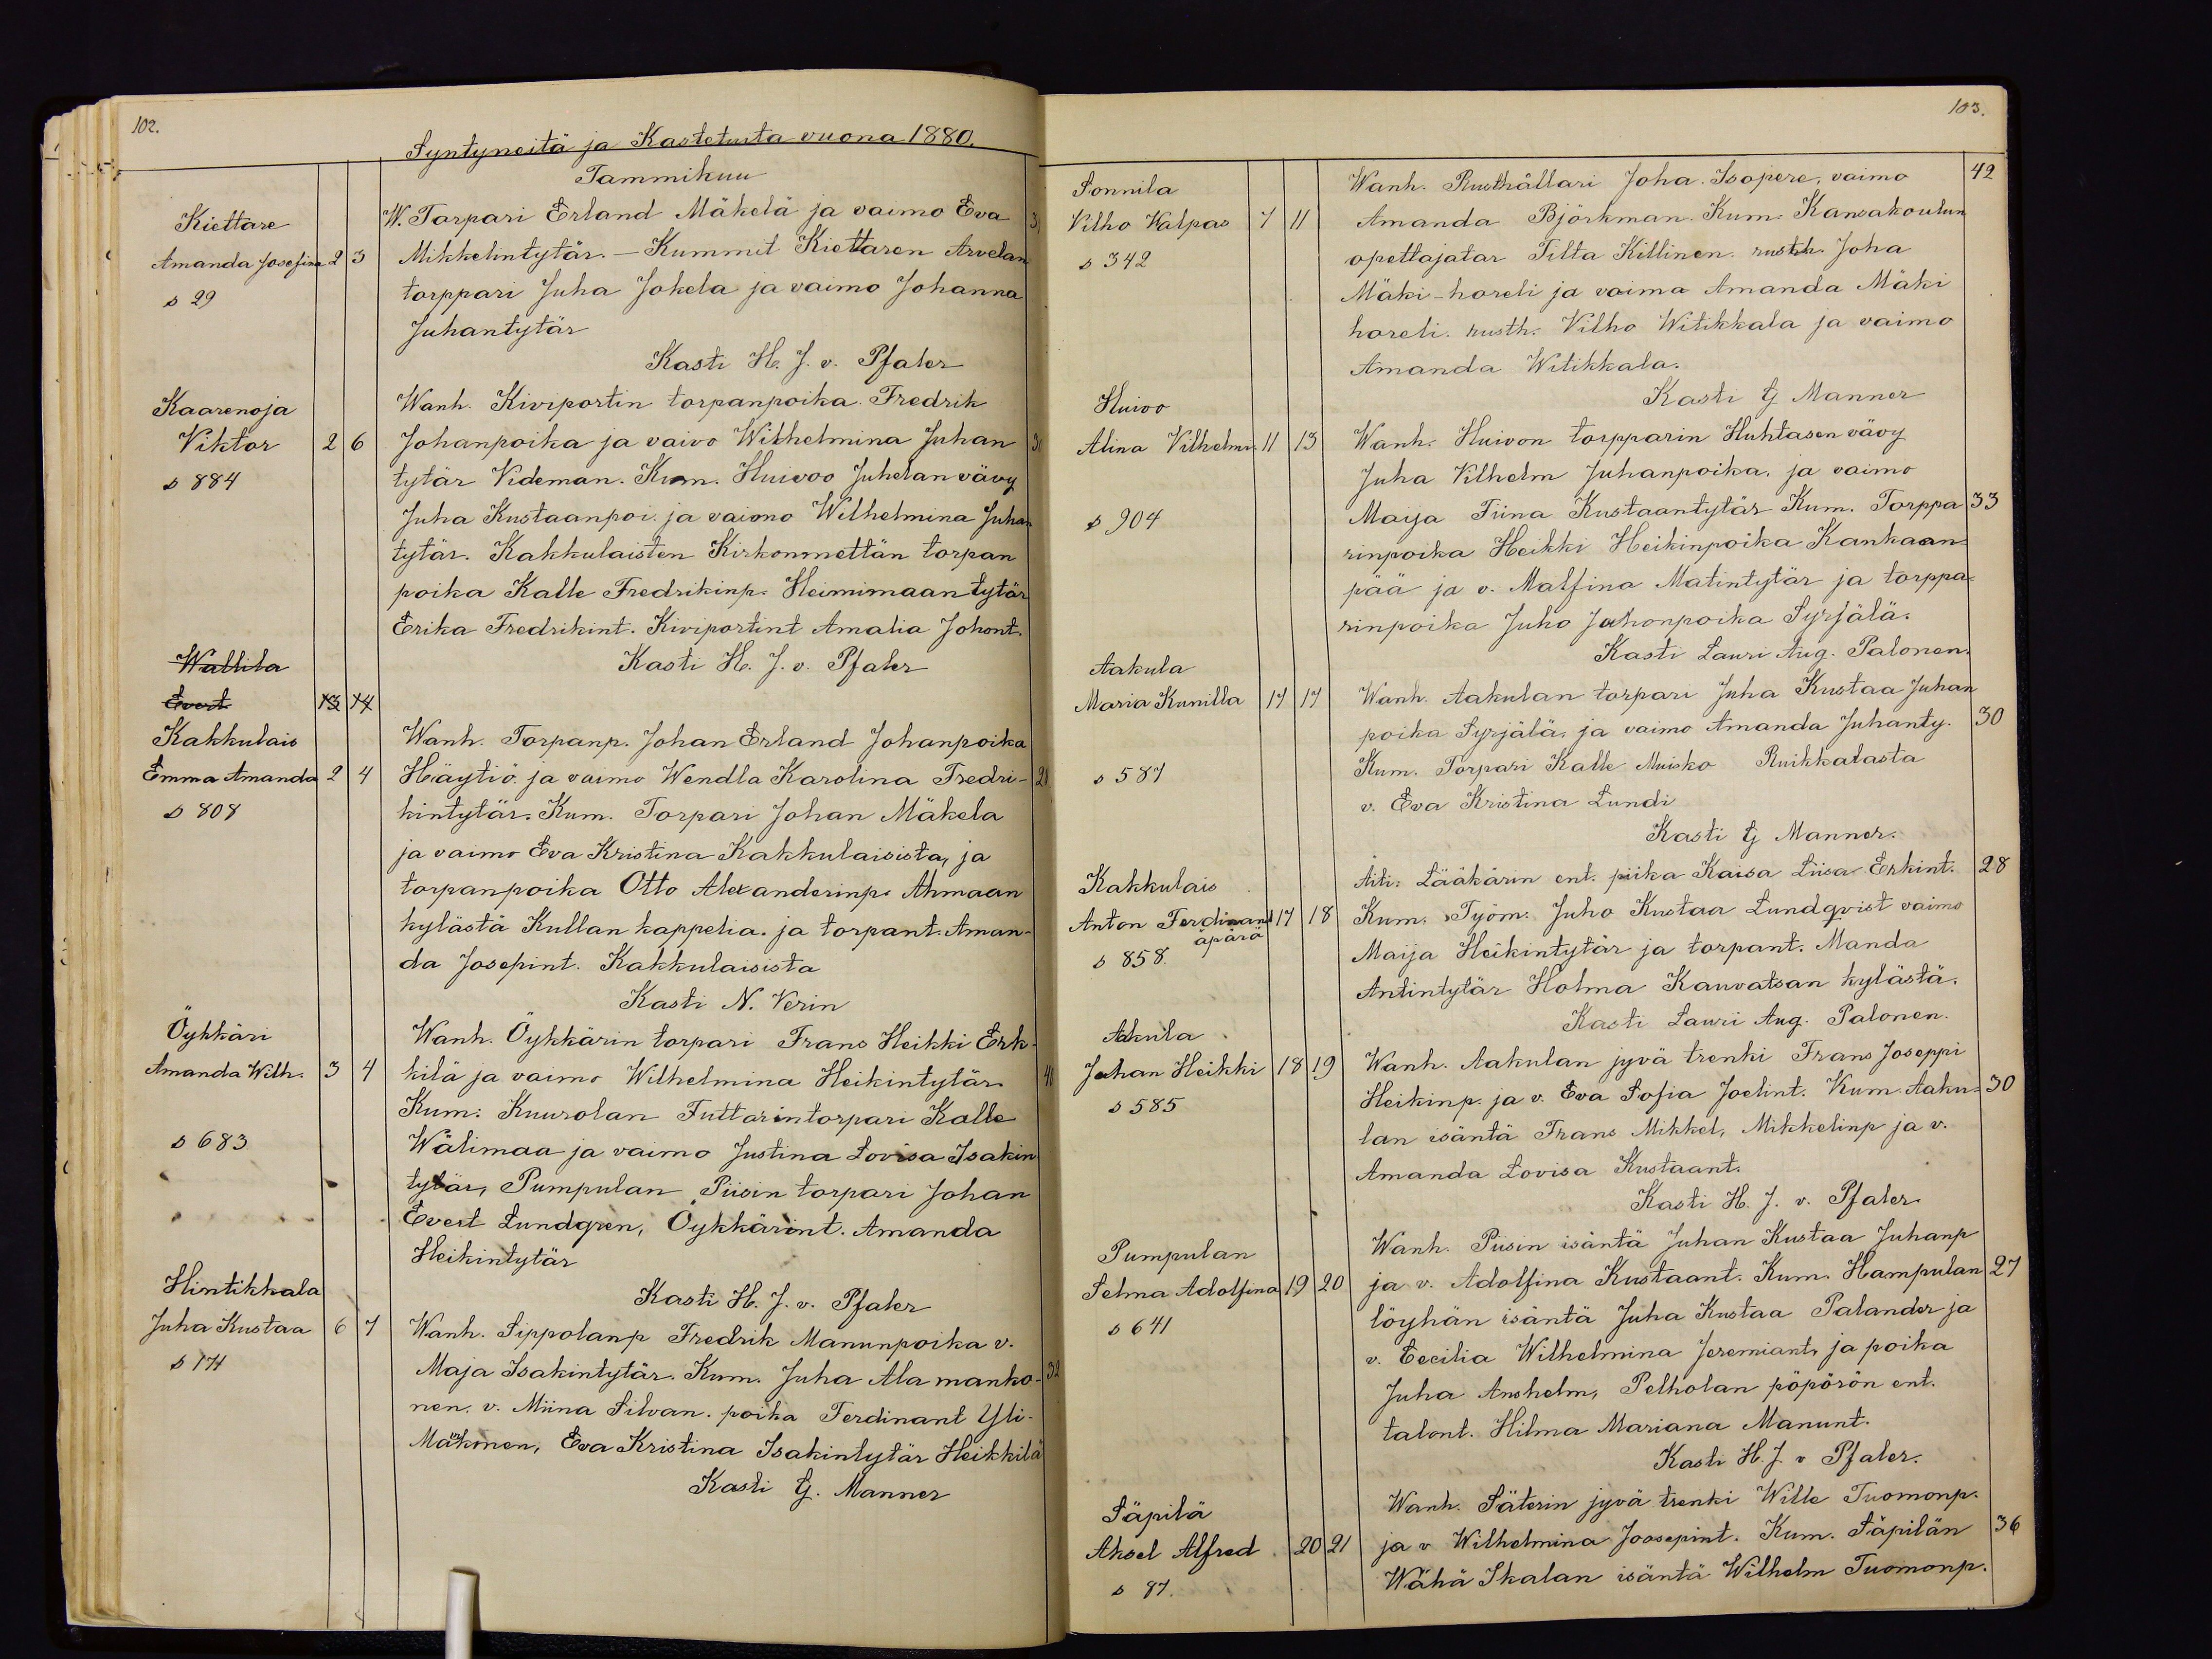 102.
Syntyneitä ja Kastetusta vuona 1880.
Tammikuu
Kiettare W. Torpari Erland Mäkelä ja vaimo Eva 3
Amanda Josefina 2 3 Mikkelintytär. — Kummit Kiettaren Arvelan
s 29 torppari Juha Jokela ja vaimo Johanna
Juhantytär
Kasti H. J. v. Pfaler
Kaarenoja Wanh. Kiviportin torpanpoika. Fredrik
Viktor 2 6 Johanpoika ja vaivo Wilhelmina Juhan 3
s 884 tytär Videman. Kum. Huivoo Juhelan vävy
Juha Kustaanpoi. ja vaimo Wilhelmina Juhan
tytär. Kakkulaisten Kirkonmettän torpan
poika Kalle Fredrikinp. Heinimaan tytär
Erika Fredrikint. Kiviportint Amalia Johont.
Wallila Kasti H. J. v. Pfaler
Evert 13 14
Kakkulais Wanh. Torpanp. Johan Erland Johanpoika
Emma Amanda 2 4 Häytiö ja vaimo Wendla Karolina Fredri- 28
s 808 kintytär. Kum. Torpari Johan Mäkela
ja vaimo Eva Kristina Kakkulaisista, ja
torpanpoika Otto Alexanderinp. Ahmaan
kylästä Kullan kappelia. ja torpant. Aman-
da Josepint. Kakkulaisista
Kasti N. Verin
Öykkäri Wanh. Öykkärin torpari Frans Heikki Erk-
Amanda Wilh. 3 4 kilä ja vaimo Wilhelmina Heikintytär 40
Kum. Kuurolan Futtarintorpari Kalle
s 683 Wälimaa ja vaimo Justina Lovisa Isakin
tytär, Pumpulan Piisin torpari Johan
Evert Lundgren, Öykkärint. Amanda
Heikintytär
Hintikkala Kasti H. J. v. Pfaler
Juha Kustaa 6 7 Wanh. Sippolanp Fredrik Manunpoika v.
s 174 Maja Isakintytär. Kum. Juha Ala manko- 32
nen. v. Miina Silvan. poika Ferdinant Yli-
Mankonen, Eva Kristina Isakintytär Heikkilä
Kasti G. Manner
103.
Sonnila Wanh. Rusthållari Joha. Isopere, vaimo 42
Vilho Valpas 7 11 Amanda Björkman. Kum. Kansakoulun
s 342 opettajatar Tilta Killinen. rusth. Joha
Mäki-horeli ja vaima Amanda Mäki
horeli. rusth. Vilho Witikkala ja vaimo
Amanda Witikkala.
Huivo Kasti G Manner
Alina Vilhelmi. 11 13 Wanh. Huivon torpparin Huhtasen vävy
Juha Vilhelm Juhanpoika, ja vaimo
s 904 Maija Tiina Kustaantytär Kum. Torppa 33
rinpoika Heikki Heikinpoika Kankaan-
pää ja v. Malfina Matintytär ja torppa-
rinpoika Juho Juhonpoika Syrjälä.
Aakula Kasti Lauri Aug. Palonen.
Maria Kunilla 17 17 Wanh. Aakulan torpari Juha Kustaa Juhan
poika Syrjälä, ja vaimo Amanda Juhanty. 30
s 587 Kum. Torpari Kalle Muisko Ruikkalasta
v. Eva Kristina Lundi
Kasti G Manner.
Kakkulais Äiti: Lääkärin ent. piika Kaisa Liisa Erkint. 28
Anton Ferdinand 17 18 Kum. Työm. Juho Kustaa Lundqvist vaimo
äpärä
s 858. Maija Heikintytär ja torpant. Manda
Antintytär Holma Kauvatsan kylästä.
Aakula Kasti Lauri Aug. Palonen.
Johan Heikki 18 19 Wanh. Aakulan jyvä trenki Frans Joseppi
s 585 Heikinp. ja v. Eva Sofia Joelint. Kum. Aaku- 30
lan isäntä Frans Mikkel, Mikkelinp ja v.
Amanda Lovisa Kustaant.
Kasti H. J. v. Pfaler.
Pumpulan Wanh. Piisin isäntä Juhan Kustaa Juhanp
Selma Adolfina 19 20 ja v. Adolfina Kustaant. Kum. Hampulan 27
s 641 löyhän isäntä Juha Kustaa Palander ja
v. Cecilia Wilhelmina Jeremiant, ja poika
Juha Anshelm, Pelholan pöpörön ent.
talont. Hilma Mariana Manunt.
Kasti H. J. v Pfaler.
Säpilä Wanh. Säterin jyvä trenki Wille Tuomonp.
Aksel Alfred 20 21 ja v Wilhelmina Joosepint. Kum. Säpilän 36
s 87. Wähä Skalan isäntä Wilhelm Tuomonp.